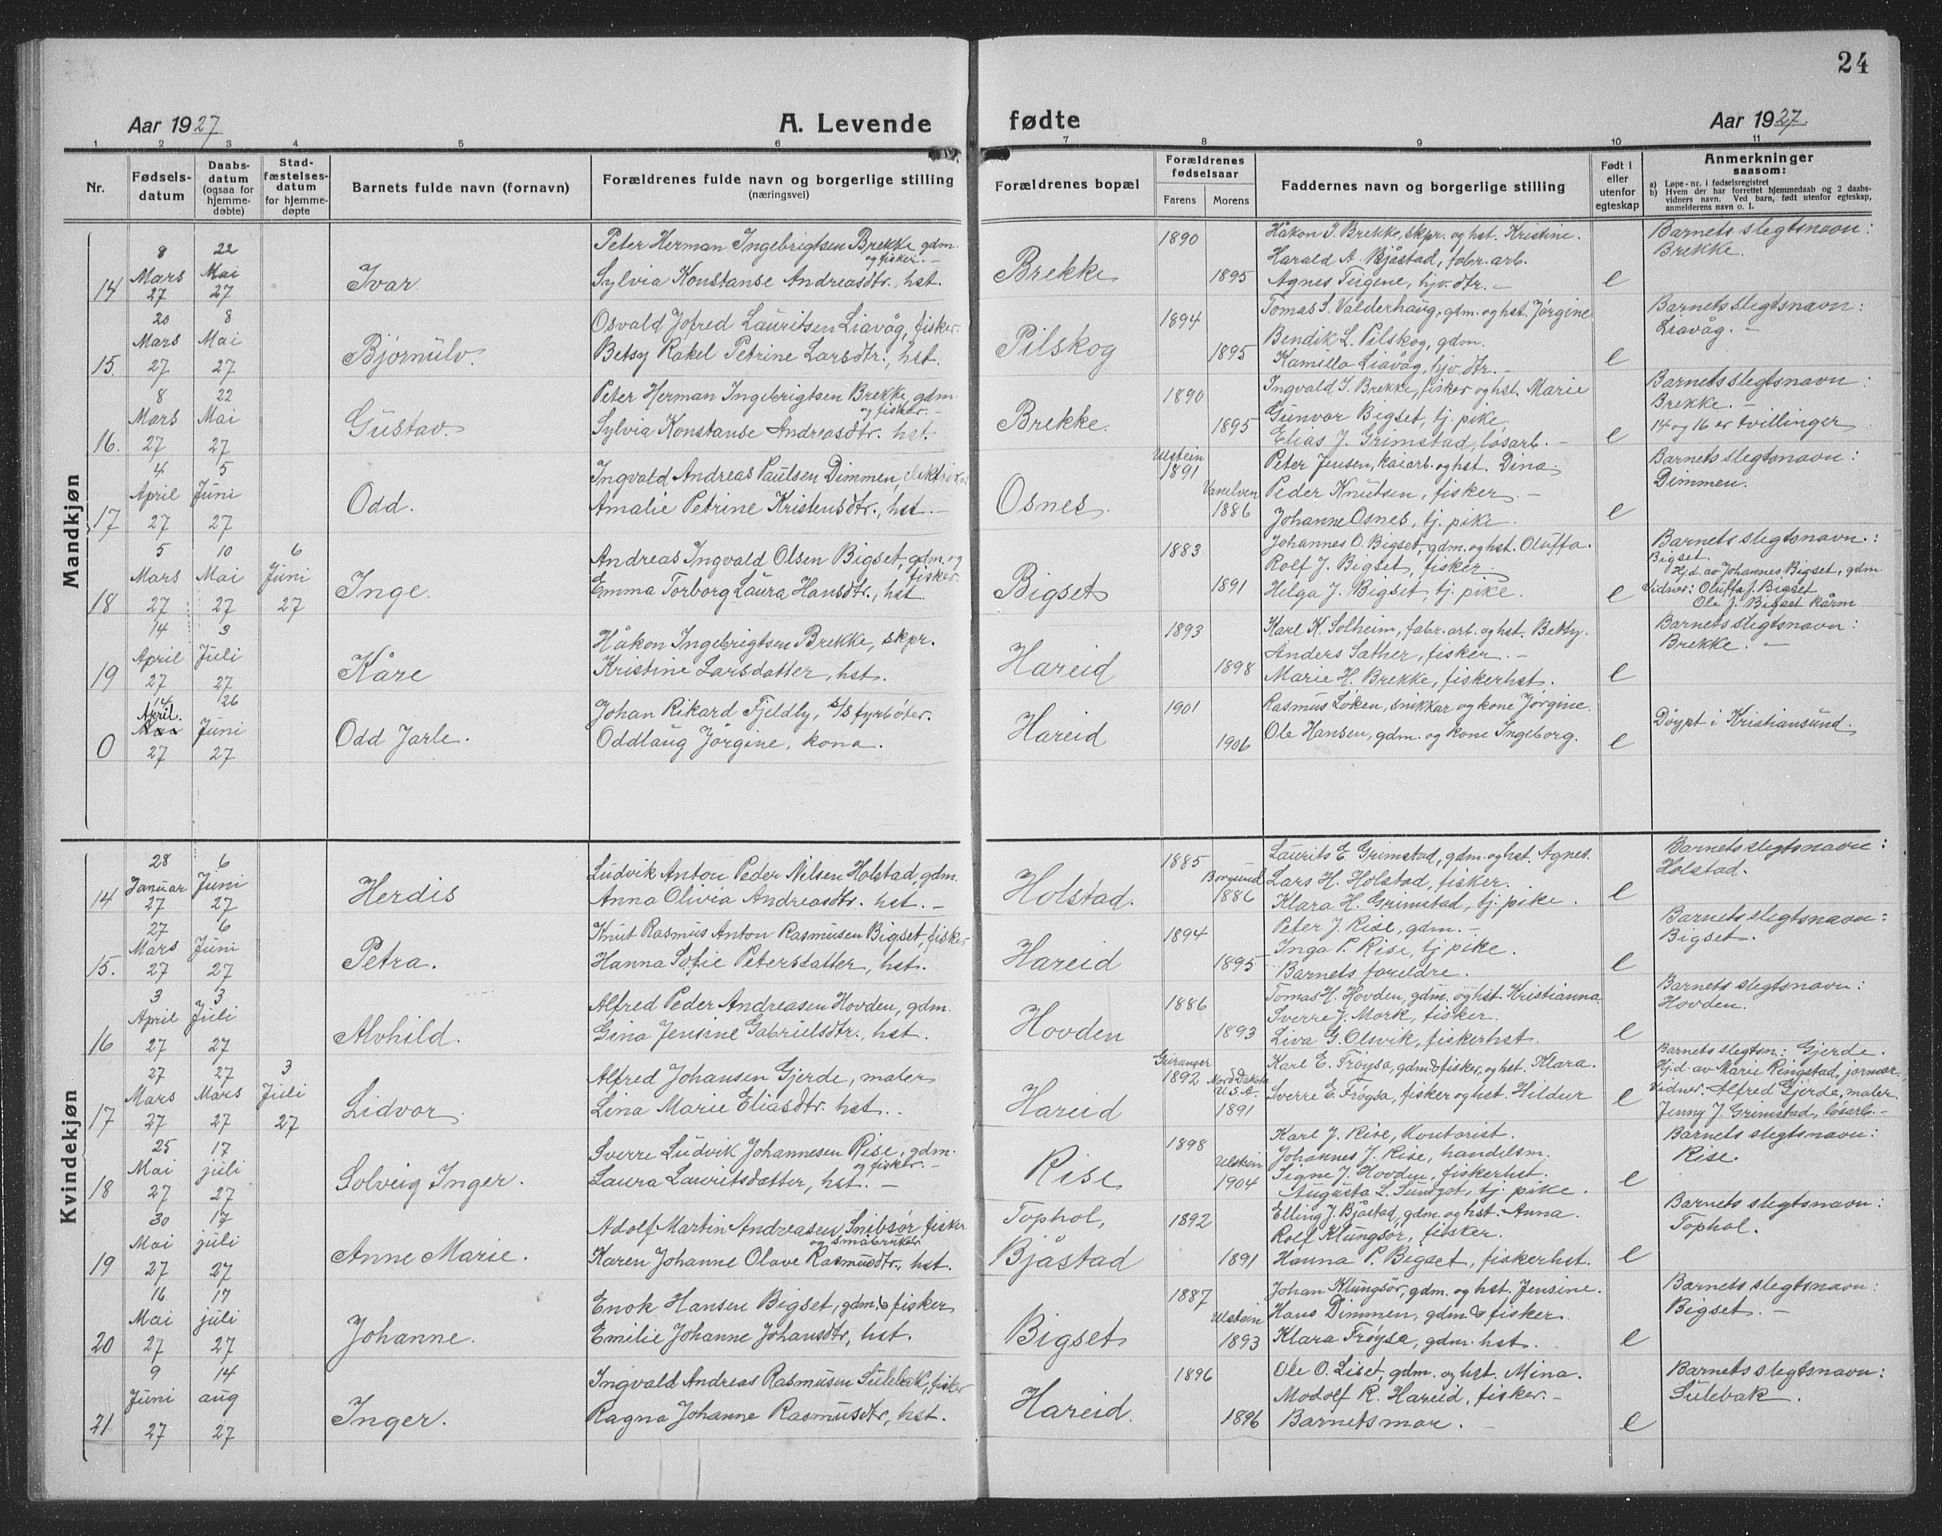 24
Aar 1927
A. Levende
fødte
Aar 1927
1 2 3 4 5 6 7 8 9 10 11
Nr.
Fødsels-
datum
Daabs-
datum
(ogsaa for
hjemme-
døbte)
Stad-
fæstelses-
datum
for hjemme-
døpte
Barnets fulde navn (fornavn)
Forældrenes fulde navn og borgerlige stilling
(næringsvei)
Forældrenes bopæl
Forældrenes
fødselsaar
Farens Morens
Faddernes navn og borgerlige stilling
Født i
eller
utenfor
egteskap
Anmerkninger
saasom:
a) Løpe-nr. i fødselsregistret
b) Hvem der har forrettet hjemmedaab og 2 daabs-
vidners navn. Ved barn, født utenfor egteskap,
anmelderens navn o. l.
Mandkjøn
14
8 Mars 27
22 Mai 27
Ivar
Peter Herman Ingebrigtsen Brekke, gdm.
og fisker.-
Sylvia Konstanse Andreasdtr., hst.
Brekke
1890
1895
Håkon I. Brekke, skpr. og hst. Kristine.
Harald A. Bjåstad, fabr.arb.
Agnes Teigene, hjv. dtr. -
e
Barnets slegtsnavn:
Brekke.
15.
20 Mars 27
8 Mai 27
Bjørnulv.
Osvald Jofred Lauritsen Liavåg, fisker.
Betsy Rakel Petrine Larsdtr., hst.
Pilskog
1894
1895
Tomas S. Valderhaug, gdm. og hst. Jørgine
Bendik L. Pilskog, gdm.
Kamilla Liavåg, hjv. dtr. -
e
Barnets slegtsnavn:
Liavåg. -
16.
8 Mars 27
22 Mai 27
Gustav.
Peter Herman Ingebrigtsen Brekke, gdm.
og fisker. -
Sylvia Konstanse Andreasdtr. hst.
Brekke.
1890
1895
Ingvald I. Brekke, fisker og hst. Marie
Gunvor Bigset, tj. pike.
Elias J. Grimstad, løsarb. -
e
Barnets slegtsnavn:
Brekke. -
14 og 16 er tvillinger
17
4 April 27
5 Juni 27
Odd.
Ingvald Andreas Paulsen Dimmen,
Amalie Petrine Kristensdtr., hst. -
Osnes.
Ulstein
1891
Vanelven
1886
Peter Jensen, kaiarb. og hst. Dina
Peder Knutsen, fisker. -
Johanne Osnes, tj. pike.
e
Barnets slegtsnavn:
Dimmen.
18
5 Mars 27
10 Mai 27
6 Juni 27
Inge.
Andreas Ingvald Olsen Bigset, gdm. og
fisker.
Emma Torborg Laura Hansdtr., hst.
Bigset
1883
1891
Johannes O. Bigset, gdm. og hst. Oluffa.
Rolf J. Bigset, fisker.
Helga J. Bigset, tj. pike.
e
Barnets slegtsnavn:
Bigset.
Hj.d. av Johannes Bigset, gdm.
Vidner: Oluffa J. Bigset
Ole J. Bigset
19
14 April 27
3 Juli 27
Kåre
Håkon Ingebrigtsen Brekke, skpr.
Kristine Larsdatter, hst.
Hareid
1893
1898
Karl K. Solheim, fabr. arb. og hst. Betty.
Anders Sather, fisker. -
Marie H. Brekke, fiskerhst.
e
Barnets slegtsnavn:
Brekke. -
0
14 April. 27
26 Juni 27
Odd Jarle.
Johan Rikard Fjeldly, S/S fyrbøter.
Oddlaug Jørgine, kona.
Hareid
1901
1906
Rasmus Løken, snikkar og kone Jørgine.
Ole Hansen, gdm. og kone Ingeborg.
e
Døypt i Kristiansund.
Kvindekjøn
14
28 Januar 27
6 Juni 27
Herdis
Ludvik Anton Peder Nilsen Holstad, gdm.
Anna Olivia Andreasdtr. hst. -
Holstad.
1885
Borgund
1886
Laurits E. Grimstad, gdm. og hst. Agnes.
Lars H. Holstad, fisker.
Klara H. Grimstad, tj. pike.
e
Barnets slegtsnavn:
Holstad.
15.
27 Mars 27
6 Juni 27
Petra.
Knut Rasmus Anton Rasmusen Bigset, fisker
Hanna Sofie Petersdatter, hst.
Hareid
1894
1895
Peter J. Rise, gdm. -
Inga P. Rise, tj. pike.
Barnets foreldre.
e
Barnets slegtsnavn:
Bigset.
16
3 April 27
3 Juli 27
Alvhild.
Alfred Peder Andreasen Hovden, gdm.
Gina Jensine Gabrielsdtr., hst.
Hovden
1886
1893
Tomas H. Hovden, gdm. og hst. Kristianna.
Sverre J. Mork, fisker.
Liva G. Olsvik, fiskerhst.
e
Barnets slegtsnavn:
Hovden.
17
27 Mars 27
27 Mars 27
3 Juli 27
Lidvor.
Alfred Johansen Gjerde, maler
Lina Marie Eliasdtr. hst. -
Hareid
Geiranger
1892
Nord Dakota
U.S.A.
1891
Karl E. Frøysa, gdm. & fisker, og hst. Klara.
Sverre E. Frøysa, fisker og hst. Hildur
e
Barnets slegtsn: Gjerde.
Hj.d. av Marie Ringstad, jormor.
Vidner: Alfred Gjerde, maler.
Jenny J. Grimstad, løsarb. -
18
25 Mai 27
17 juli 27
Solveig Inger.
Sverre Ludvik Johannesen Rise, gdm.
og fisker. -
Laura Lauritsdatter, hst. -
Rise
1898
Ulstein
1904
Karl J. Rise, kontorist.
Johannes J. Rise, handelsm.
Signe J. Hovden, fiskerhst.
Augusta L. Sundgot, tj. pike.
e
Barnets slegtsnavn:
Rise.
19
30 Mai 27
17 juli 27
Anne Marie.
Adolf Martin Andreasen Snibsør, fisker
og småbruker
Karen Johanne Olave Rasmusdtr., hst.
Tophol,
Bjåstad
1892
1891
Elling J. Bjåstad, gdm. og hst. Anna.
Rolf Klungsør, fisker.
Hanna P. Bigset, fiskerhst.
e
Barnets slegtsnavn:
Tophol.
20
16 Mai 27
17 juli 27
Johanne.
Enok Hansen Bigset, gdm. & fisker
Emilie Johanne Johansdtr, hst.
Bigset
1887
Ulstein
1893
Johan Klungsør, gdm. og hst. Jensine.
Hans Dimmen, gdm. & fisker.
Klara Frøysa, gdm. hst.
e
Barnets slegtsnavn:
Bigset. -
21
9 Juni 27
14 aug 27
Inger.
Ingvald Andreas Rasmusen Sulebak, fisker
Ragna Johanne Rasmusdtr., hst.
Hareid.
1896
1896
Ole O. Liset, gdm. og hst. Mina.
Modolf R. Hareid, fisker. -
Barnets mor. -
e
Barnets slegtsnavn:
Sulebak.